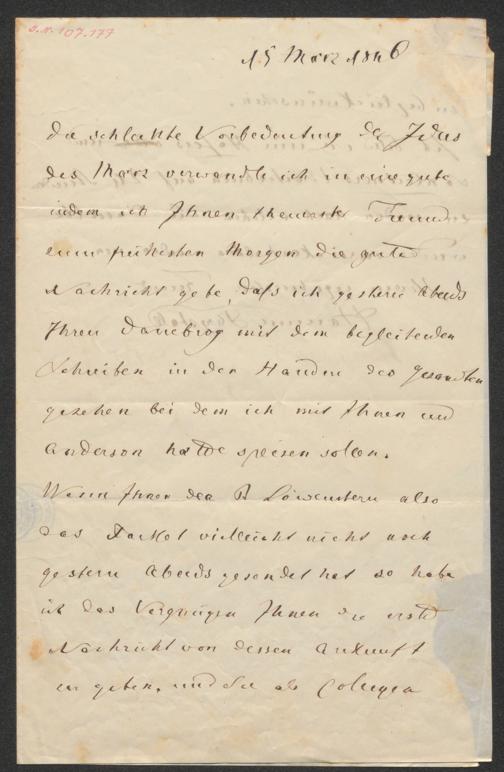 J.N. 107.177
15 März 1846
die schlechte Vorbedeutung der Idus
des März verwandle ich in eine gute
indem ich Ihnen theuerster Freund
zum frühesten Morgen die gute
Nachricht gebe, daß ich gestern Abends
Ihren Danebrog mit dem begleitenden
Schreiben in den Händen des gesandten
gesehen bei dem ich mit Ihnen und
Anderson hatte speisen sollen.
Wenn Ihnen der B Löwenstern also
das Packet vielleicht nicht noch
gestern Abends gesendet hat so habe
ich das Vergnügen Ihnen die erste
Nachricht von dessen Ankunft
zu geben, und Sie als Collegen